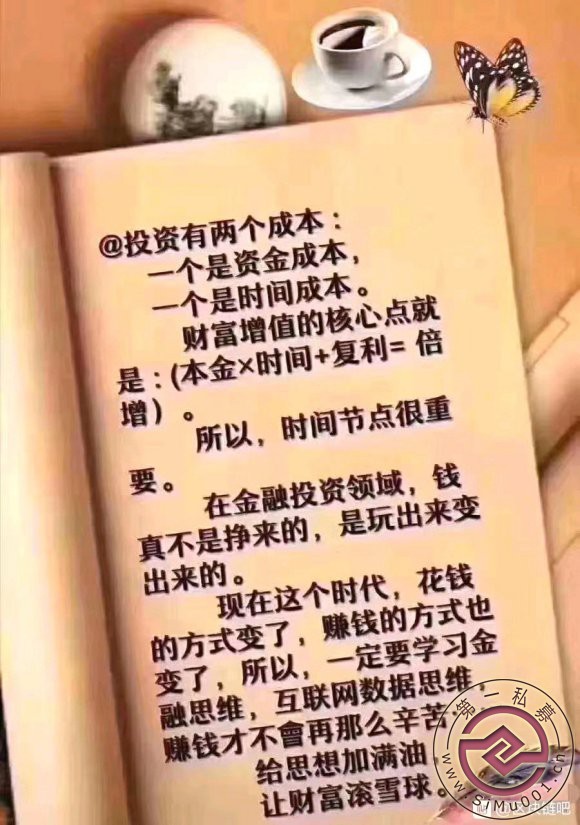 @投资有两个成本：
一个是资金成本，
一个是时间成本。
财富增值的核心点就
是：(本金×时间+复利= 倍
增）。
所以，时间节点很重
要。
在金融投资领域，钱
真不是挣来的，是玩出来变
出来的。
现在这个时代，花钱
的方式变了，赚钱的方式也
变了，所以，一定要学习金
融思维，互联网数据思维，
赚钱才不會再那么辛苦…
给思想加满油，
让财富滚雪球。
第一私募
www.SiMu001.cn